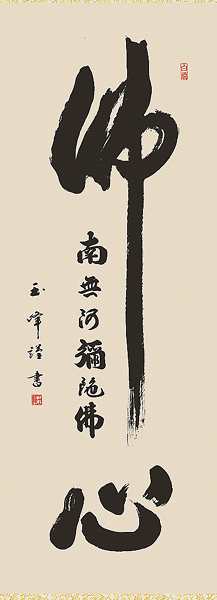 佛心
南無阿彌陀佛
玉峰謹書